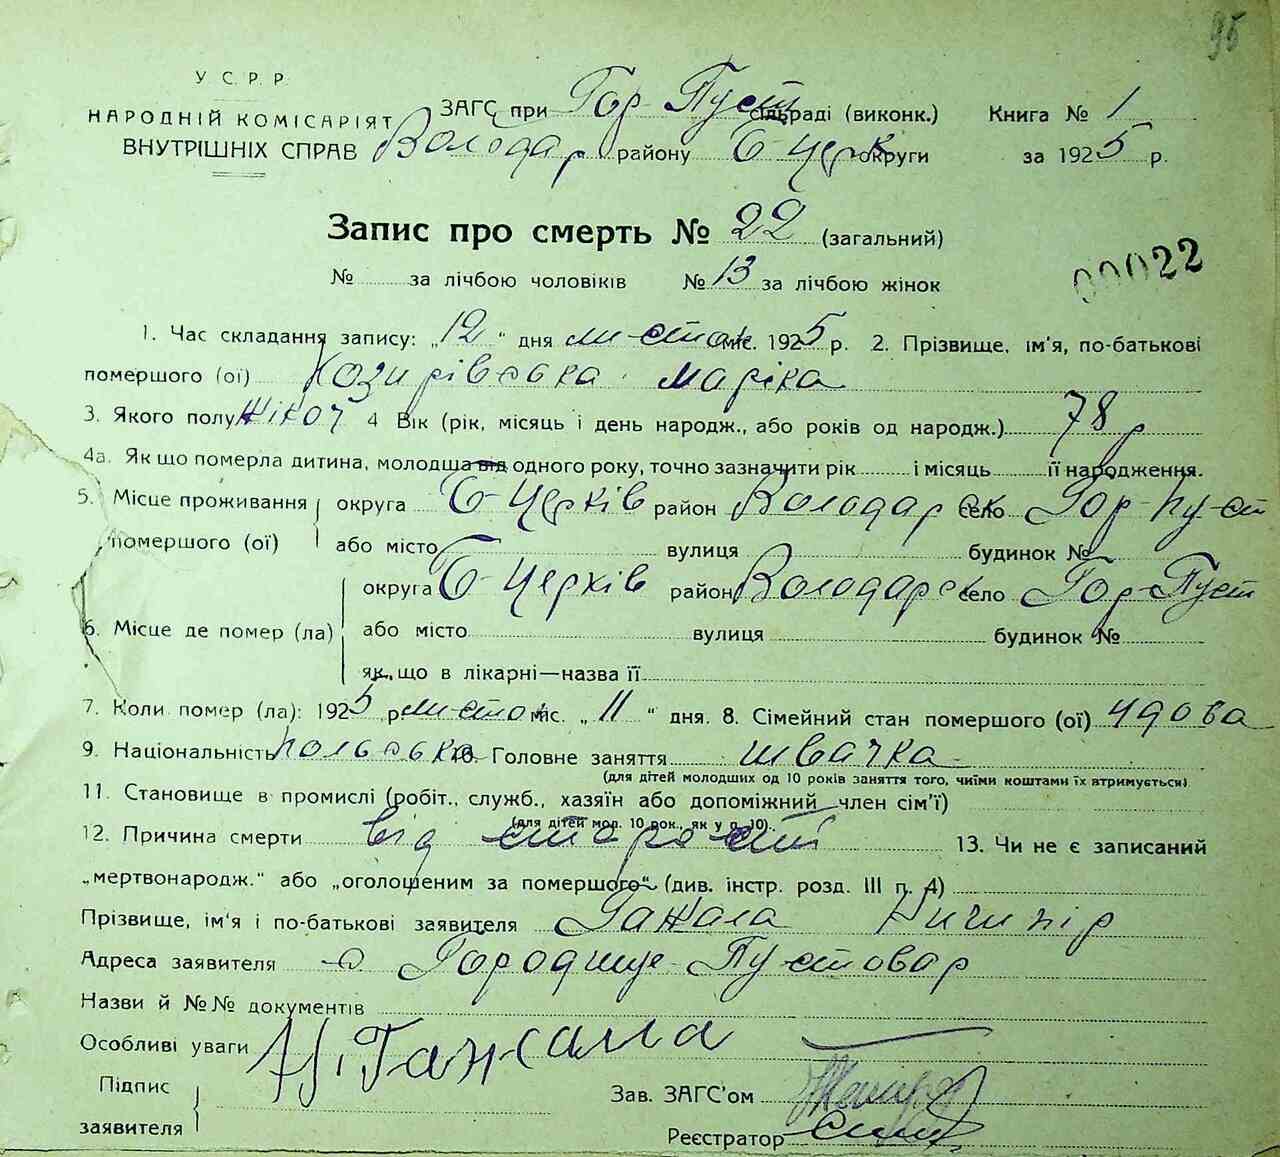 95
У С. Р. Р.
НАРОДНІЙ КОМІСАРІЯТ
ВНУТРІШНІХ СПРАВ
ЗАГС при Гор-Пуст сільраді (виконк.) Книга № 1
Володар району Б-Церк округи за 1925 р.
Запис про смерть № 22 (загальний)
№ за лічбою чоловиків № 13 за лічбою жінок
00022
1. Час складання запису: „12“ дня листоп міс. 1925 р. 2. Прізвище, ім'я, по-батькові
помершого (ої) Козирівська Маріка
3. Якого полу жіноч 4 Вік (рік, місяць і день народж., або років од народж.) 78 р
4а. Як що померла дитина, молодша від одного року, точно зазначити рік і місяць її народження.
5. Місце проживання помершого (ої) округа Б-Церків район Володарск село Гор-Пуст
або місто вулиця будинок №
6. Місце де помер (ла) округа Б-Церків район Володарс село Гор-Пуст
або місто вулиця будинок №
як що в лікарні—назва її
7. Коли помер (ла): 1925 р листоп міс. „11“ дня. 8. Сімейний стан помершого (ої) удова
9. Національність польська 10. Головне заняття швачка
(для дітей молодших од 10 років заняття того, чиїми коштами їх втримується)
11. Становище в промислі (робіт., служб., хазяїн або допоміжний член сім'ї)
(для дітей мол. 10 рок., як у п. 10).
12. Причина смерти від старости 13. Чи не є записаний
„мертвонародж.“ або „оголошеним за помершого“ (див. інстр. розд. III п. 4)
Прізвище, ім'я і по-батькові заявителя Гажала Ничипір
Адреса заявителя с Городище-Пустовар
Назви й №№ документів
Особливі уваги
Підпис заявителя Н. Гажала
Зав. ЗАГС'ом
Реєстратор